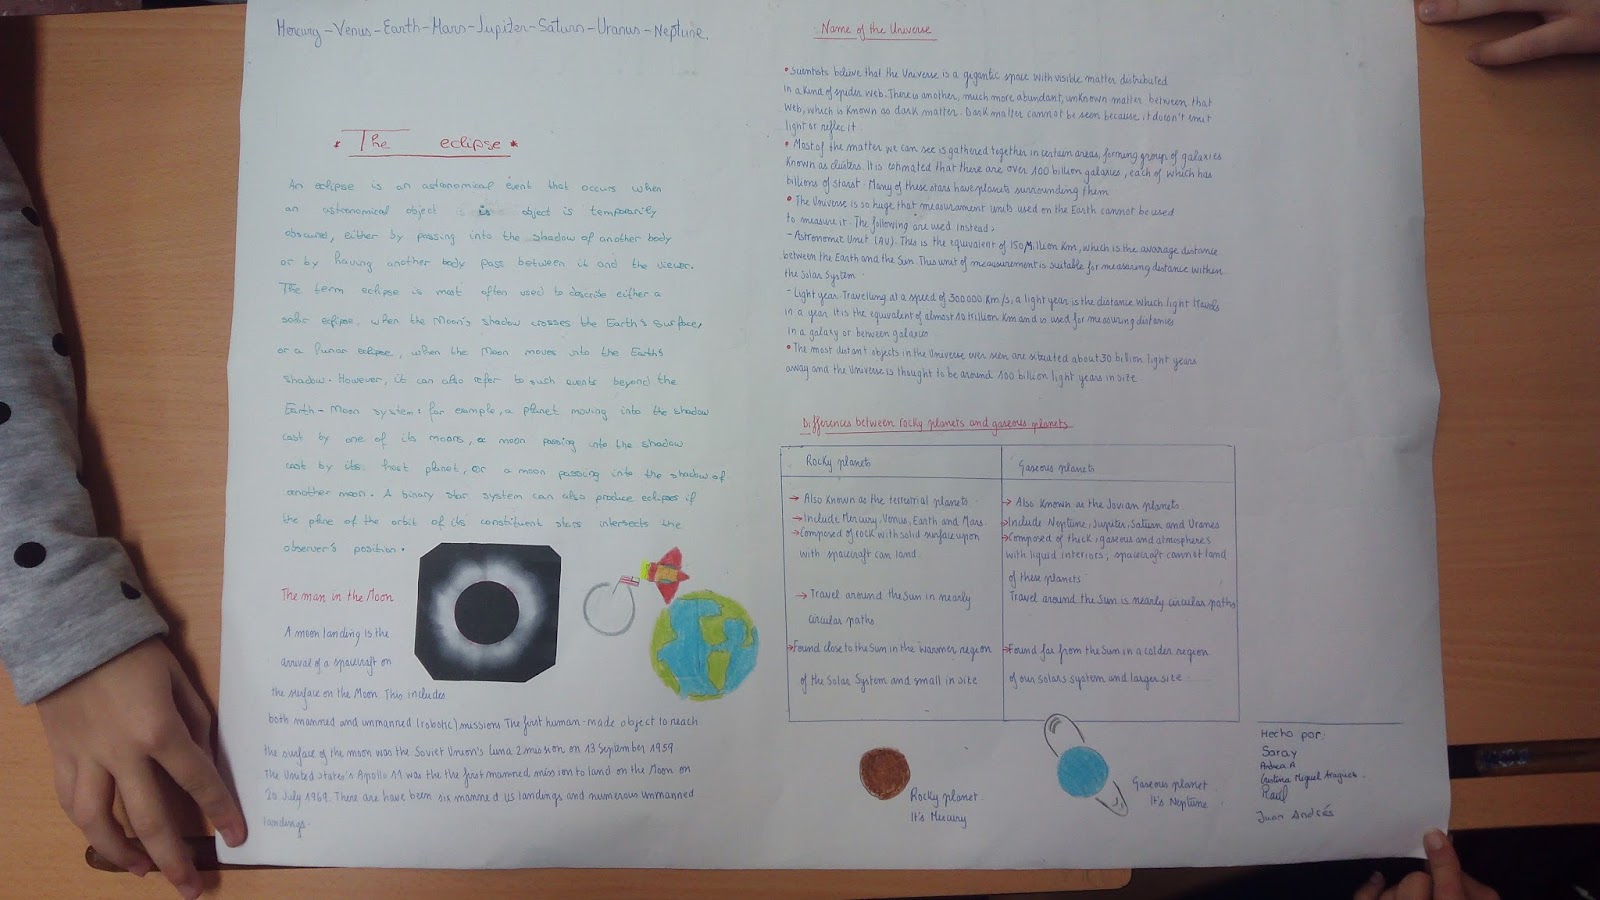 Mercury-Venus-Earth-Mars-Jupiter-Saturn-Uranus-Neptune.
* The eclipse *
An eclipse is an astonomical event that occurs when
an astronomical object is object is temporarity
obscured, either by passing into the shadow of another body
or by having another body pass between it and the viewer.
The term eclipse is most often used to describe either a
solar eclipse, when the Moon's shadow crosses the Earth's surface,
or a lunar eclipse, when the Moon moves into the Earth's
shadow. However, it can also refer to such events beyond the
Earth-Moon system: for example, a planet moving into the shadow
cast by one of its moons, a moon passing into the shadow
cast by its host planet, or a moon passing into the shadow of
another moon. A binary star system can also produce eclipses if
the plane of the orbit of its constituent stars intersects the
observer's position.
The man in the Moon
A moon landing is the
arrival of a spacecraft on
the surface on the Moon. This includes
both manned and unmanned (robotic) missions. The first human-made object to reach
the surface of the moon was the Soviet Union's Luna 2 mission on 13 September 1959
The United states's Apollo 11 was the the first manned mission to land on the Moon on
20 July 1969. There are have been six manned us landings and numerous unmanned
landings.
Name of the Universe
• Scientists believe that the Universe is a gigantic space with visible matter distributed
in a kind of spider web. There is another, much more abundant, unknown matter between that
web, which is known as dark matter. Dark matter cannot be seen because it doesn't emit
light or reflec it.
• Most of the matter we can see is gathered together in certain areas, forming group of galaxies
known as clusters. It is estimated that there are over 100 billion galaxies, each of which has
billions of starst. Many of these stars have planets surrounding them
• The Universe is so huge that measurament units used on the Earth cannot be used
to measure it. The following are used instead,
- Astronomic Unit (AU). This is the equivalent of 150 Million Km, which is the avarage distance
between the Earth and the Sun. This unit of measurement is suitable for measuring distance within
the Solar System.
- Light year. Travelling at a speed of 300000 Km/s, a light year is the distance which light travels
in a year. It is the equivalent of almost 10 trillion Km and is used for measuring distances
in a galaxy or between galaxies
• The most distant objects in the Universe ever seen are situated about 30 billion light years
away and the Universe is thought to be around 100 billion light years in size
Differences between rocky planets and gaseous planets
Rocky planets
→ Also Known as the terrestrial planets.
→ Include Mercury, Venus, Earth and Mars
→ Composed of rock with solid surface upon
with spacecraft can land.
→ Travel around the Sun in nearly
circular paths
→ Found close to the Sun in the warmer region
of the Solar System and small in site
Gaseous planets
→ Also Known as the Jovian planets
→ Include Neptune, Jupiter, Saturn and Uranes
→ Composed of thick, gaseous and atmospheres
with liquid interiors; spacecraft cannot land
of these planets
Travel around the Sun is nearly circular paths
→ Found far from the Sun in a colder region
of our solars system and larger site.
Rocky planet.
It's Mercury
Gaseous planet.
It's Neptune.
Hecho por:
Saray
Andrea A
Cristina Miguel
Raúl
Juan Andrés